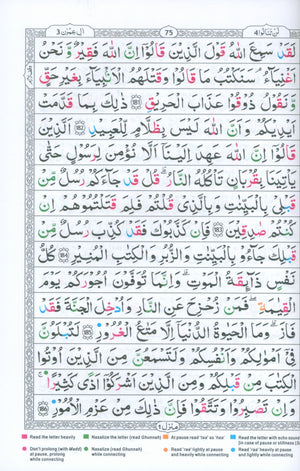 لن تنالوا 4 75 ال عمرٰن 3
لَقَدْ سَمِعَ اللّٰهُ قَوْلَ الَّذِيْنَ قَالُوْۤا اِنَّ اللّٰهَ فَقِيْرٌ وَّنَحْنُ
اَغْنِيَآءُ ۘ سَنَكْتُبُ مَا قَالُوْا وَقَتْلَهُمُ الْاَنْۢبِيَآءَ بِغَيْرِ حَقٍّ ۙ
وَّنَقُوْلُ ذُوْقُوْا عَذَابَ الْحَرِيْقِ 181 ذٰلِكَ بِمَا قَدَّمَتْ
اَيْدِيْكُمْ وَاَنَّ اللّٰهَ لَيْسَ بِظَلَّامٍ لِّلْعَبِيْدِ 182 اَلَّذِيْنَ
قَالُوْۤا اِنَّ اللّٰهَ عَهِدَ اِلَيْنَاۤ اَلَّا نُؤْمِنَ لِرَسُوْلٍ حَتّٰى
يَاْتِيَنَا بِقُرْبَانٍ تَاْكُلُهُ النَّارُ ؕ قُلْ قَدْ جَآءَكُمْ رُسُلٌ مِّنْ
قَبْلِيْ بِالْبَيِّنٰتِ وَبِالَّذِيْ قُلْتُمْ فَلِمَ قَتَلْتُمُوْهُمْ اِنْ
كُنْتُمْ صٰدِقِيْنَ 183 فَاِنْ كَذَّبُوْكَ فَقَدْ كُذِّبَ رُسُلٌ مِّنْ
قَبْلِكَ جَآءُوْ بِالْبَيِّنٰتِ وَالزُّبُرِ وَالْكِتٰبِ الْمُنِيْرِ 184 كُلُّ
نَفْسٍ ذَآئِقَةُ الْمَوْتِ ؕ وَاِنَّمَا تُوَفَّوْنَ اُجُوْرَكُمْ يَوْمَ
الْقِيٰمَةِ ؕ فَمَنْ زُحْزِحَ عَنِ النَّارِ وَاُدْخِلَ الْجَنَّةَ فَقَدْ
فَازَ ؕ وَمَا الْحَيٰوةُ الدُّنْيَاۤ اِلَّا مَتَاعُ الْغُرُوْرِ 185 لَتُبْلَوُنَّ
فِيْۤ اَمْوَالِكُمْ وَاَنْفُسِكُمْ وَلَتَسْمَعُنَّ مِنَ الَّذِيْنَ اُوْتُوا
الْكِتٰبَ مِنْ قَبْلِكُمْ وَمِنَ الَّذِيْنَ اَشْرَكُوْۤا اَذًى كَثِيْرًا ؕ
وَاِنْ تَصْبِرُوْا وَتَتَّقُوْا فَاِنَّ ذٰلِكَ مِنْ عَزْمِ الْاُمُوْرِ 186
منزل ١
Read the letter heavily
Nasalize the letter (read Ghunnah)
At pause read 'taa' as 'haa'
Read the letter with echo sound (In case of pause or stillness)
Don't prolong (with Madd) at pause, prolong while connecting
Don't nasalize (read Ghunnah) while connecting
Read 'raa' lightly at pause and heavily while connecting
Read 'raa' heavily at pause and lightly while connecting